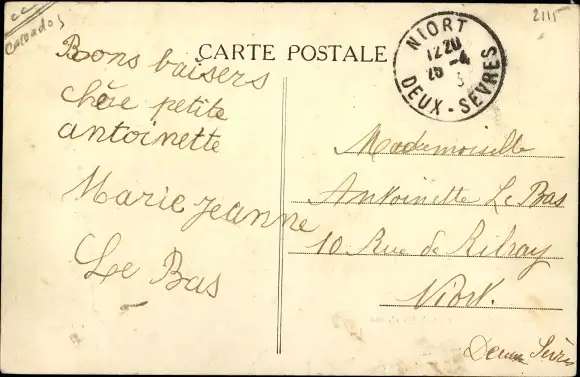 Calvados
2115
CARTE POSTALE
NIORT
1220
26 -4
3
DEUX-SEVRES
Bons baisers
chère petite
antoinette
Marie jeanne
Le Bas
Mademoiselle
Antoinette Le Bas
10 Rue de Ribray
Niort.
Deux Sèvres